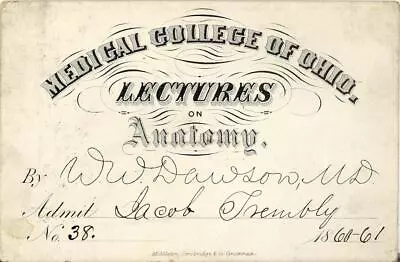 MEDICAL COLLEGE OF OHIO,
LECTURES
ON
Anatomy.
By W.W. Dawson, M.D.
Admit Jacob Trembly
No. 38. 1860-61
Middleton, Strobridge & Co. Cincinnati.